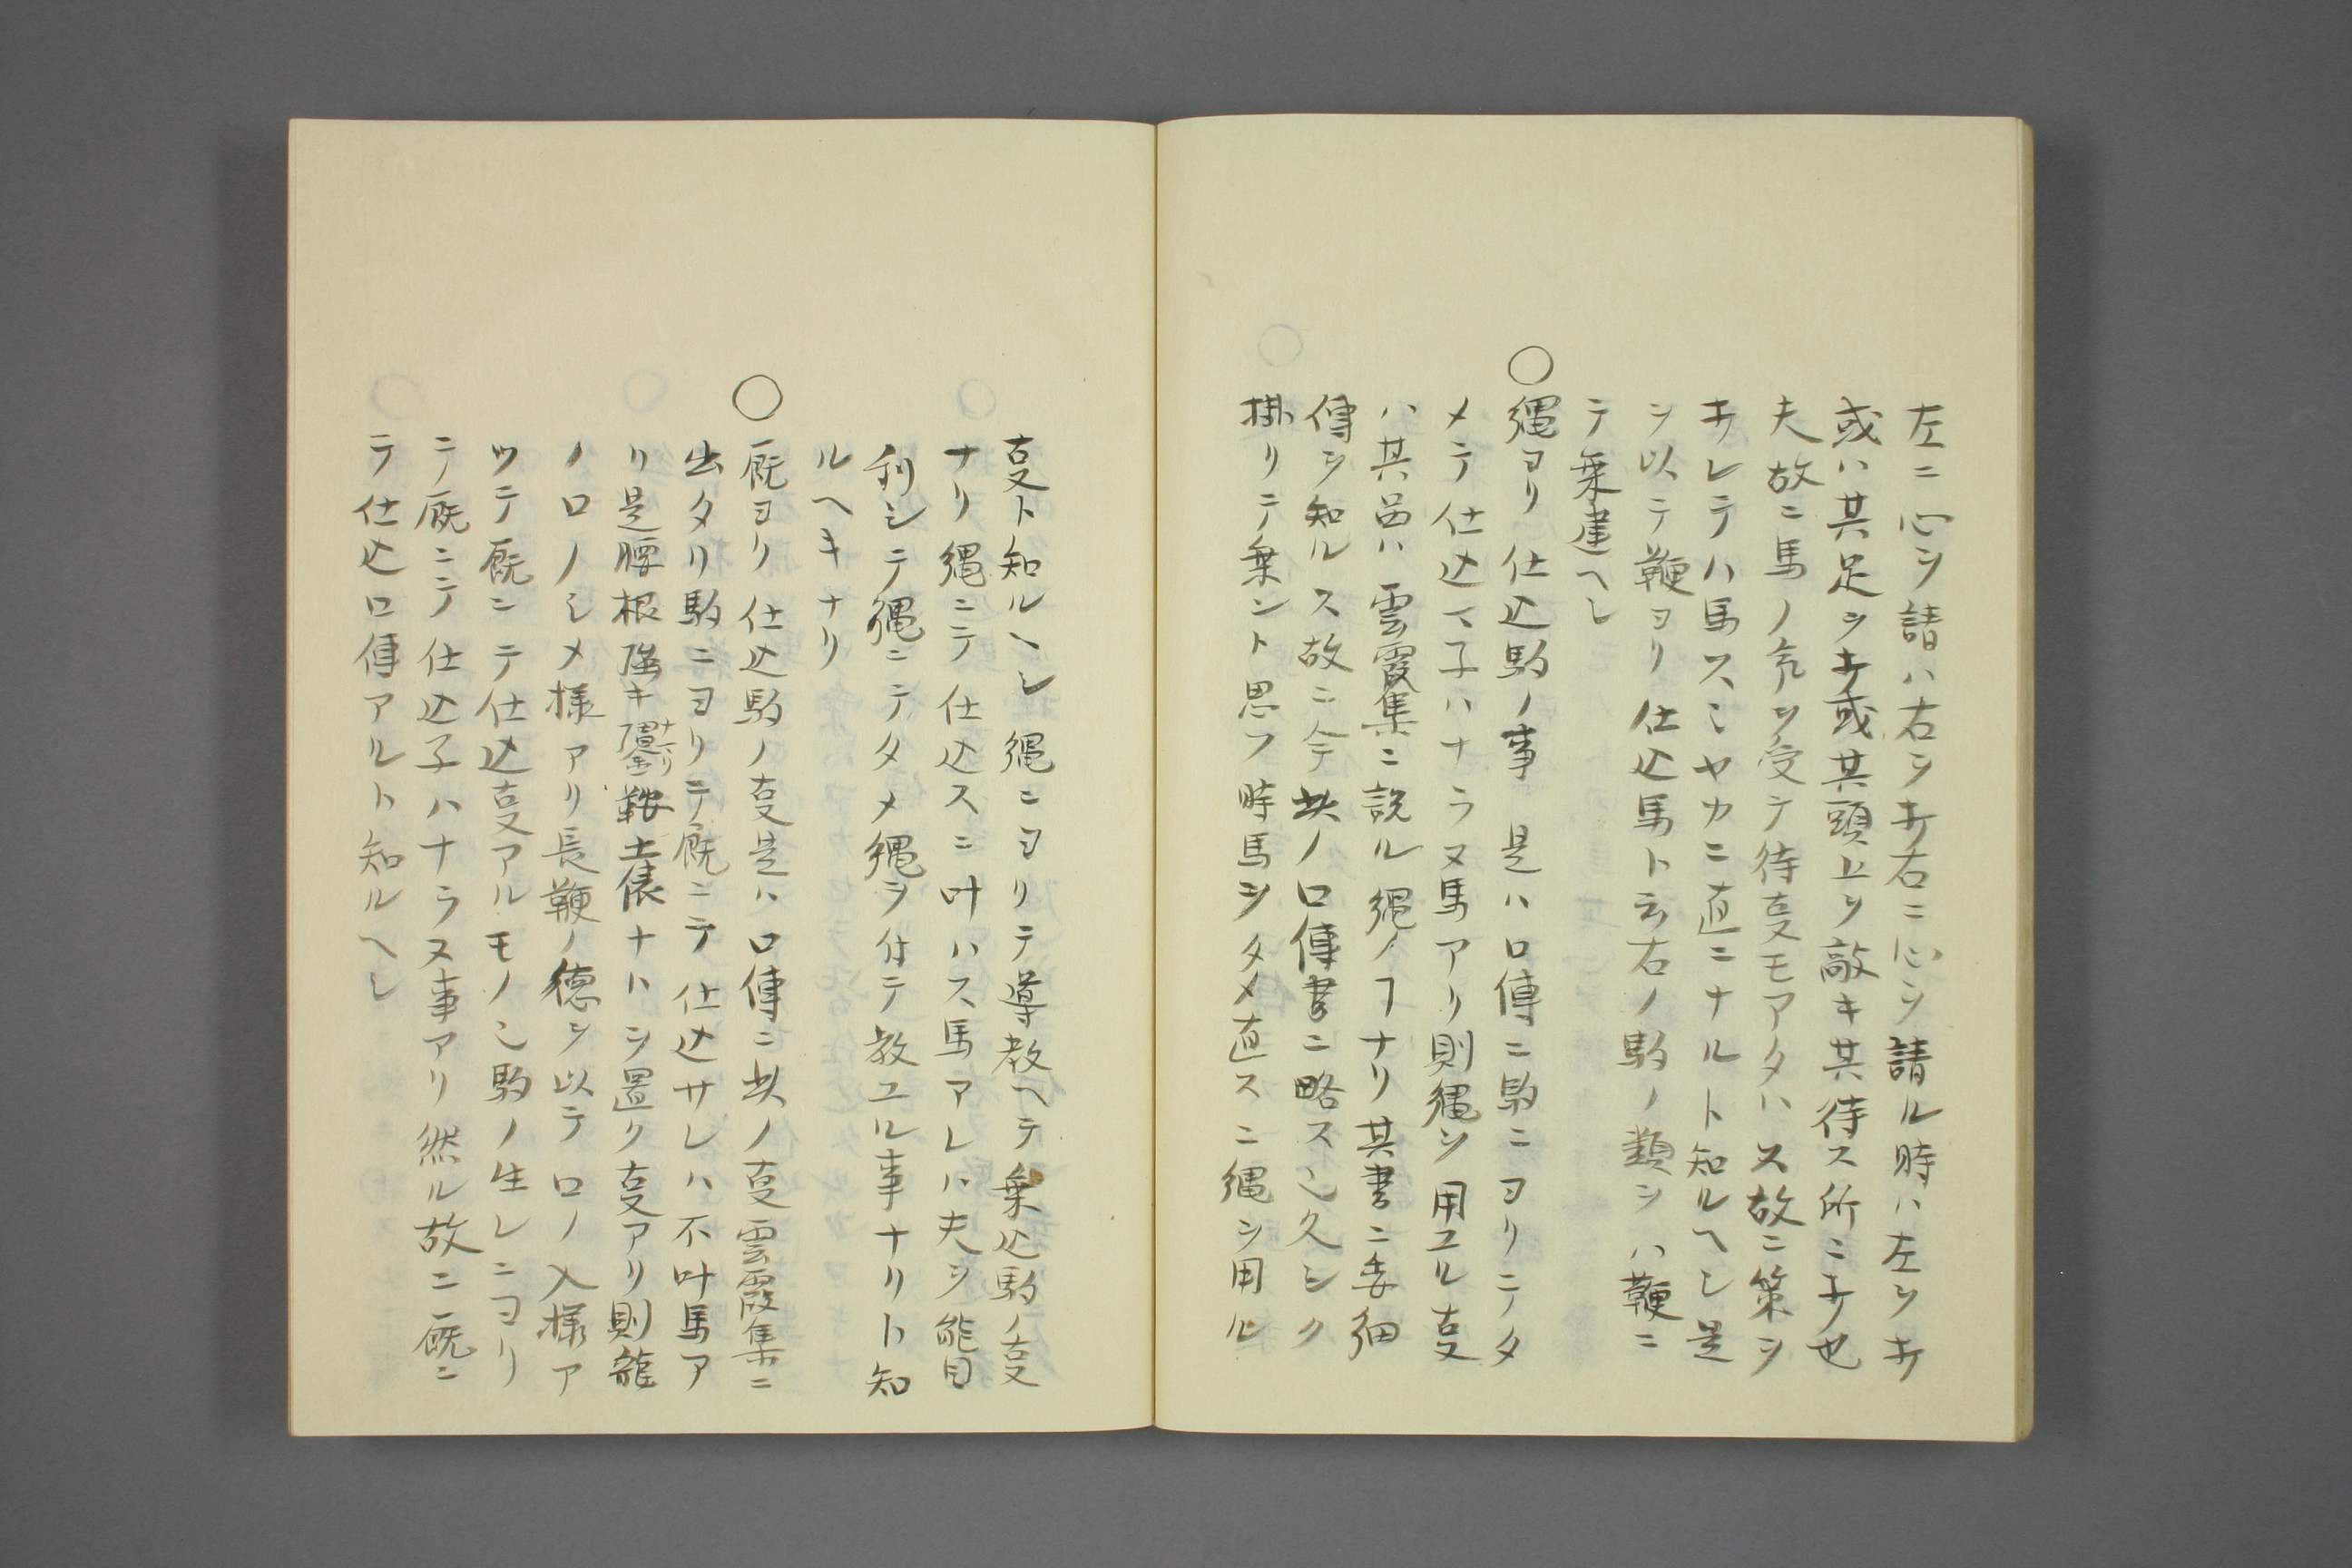 左ニ心ヲ請ハ右ヲキ右ニ心ヲ請ル時ハ左ヲキ
或ハ其足ヲキ或其頭上ヲ敲キ其待ス所ニキ也
夫故ニ馬ノ気ヲ受テ待叓モアタハス故ニ策ヲ
キレテハ馬スミヤカニ直ニナルト知ルヘシ是
ヲ以テ鞭ヨリ仕込馬ト云右ノ駒ノ類ヲハ鞭ニ
テ乗建ヘシ
○縄ヨリ仕込駒ノ事 是ハ口傳ニ駒ニヨリテタ
メテ仕込マ子ハナラヌ馬アリ則縄ヲ用ユル叓
ハ其品ハ雲霞集ニ説ル縄ノヿナリ其書ニ委細
傳ヲ知ルス故ニ今此ノ口傳書ニ略スル久シク
掛リテ乗ント思フ時馬ヲタメ直スニ縄ヲ用ル
叓ト知ルヘシ縄ニヨリテ導教ヘテ乗込駒ノ叓
ナリ縄ニテ仕込スニ叶ハス馬アレハ夫ヲ能目
利シテ縄ニテタメ縄ヲ付テ教ユル事ナリト知
ルヘキナリ
○厩ヨリ仕込駒ノ叓是ハ口傳ニ此ノ叓雲霞集ニ
出タリ駒ニヨリテ厩ニテ仕込サレハ不叶馬ア
リ是腰根強キ鞍土俵ナトヲ置ク叓アリ則龍
ノ口ノシメ様アリ長鞭ノ徳ヲ以テ口ノ入様ア
ツテ厩ニテ仕込叓アルモノ也駒ノ生レニヨリ
テ厩ニテ仕込子ハナラヌ事アリ然ル故ニ厩ニ
テ仕込口傳アルト知ルヘシ